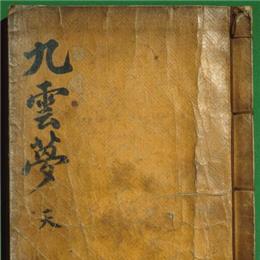 九雲夢
天